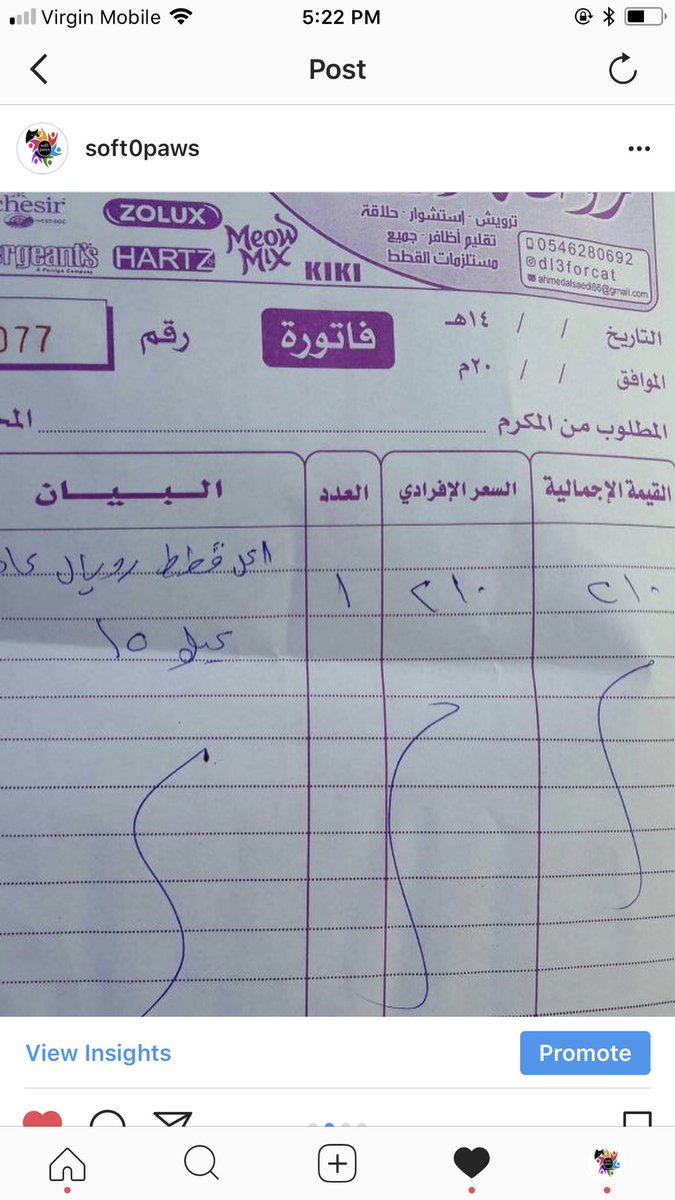 Virgin Mobile 5:22 PM
Post
soft0paws
chesir
ZOLUX
Meow Mix
ergeant's
HARTZ
KIKI
ترويش - إستشوار - حلاقة
تقليم أظافر - جميع
مستلزمات القطط
0546280692
dl3forcat
ahmedalsaedi66@gmail.com
077
رقم
فاتورة
التاريخ / / ١٤هـ
الموافق / / ٢٠م
المطلوب من المكرم
القيمة الإجمالية السعر الإفرادي العدد البيـــان
٢١٠ ٢١٠ ١ اكل قطط رويال
١٥ كيلو
View Insights
Promote